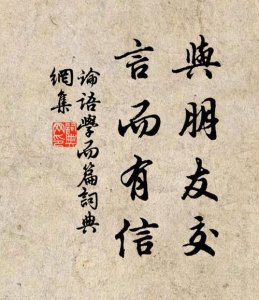 與朋友交
言而有信
論语學而篇詞典
網集